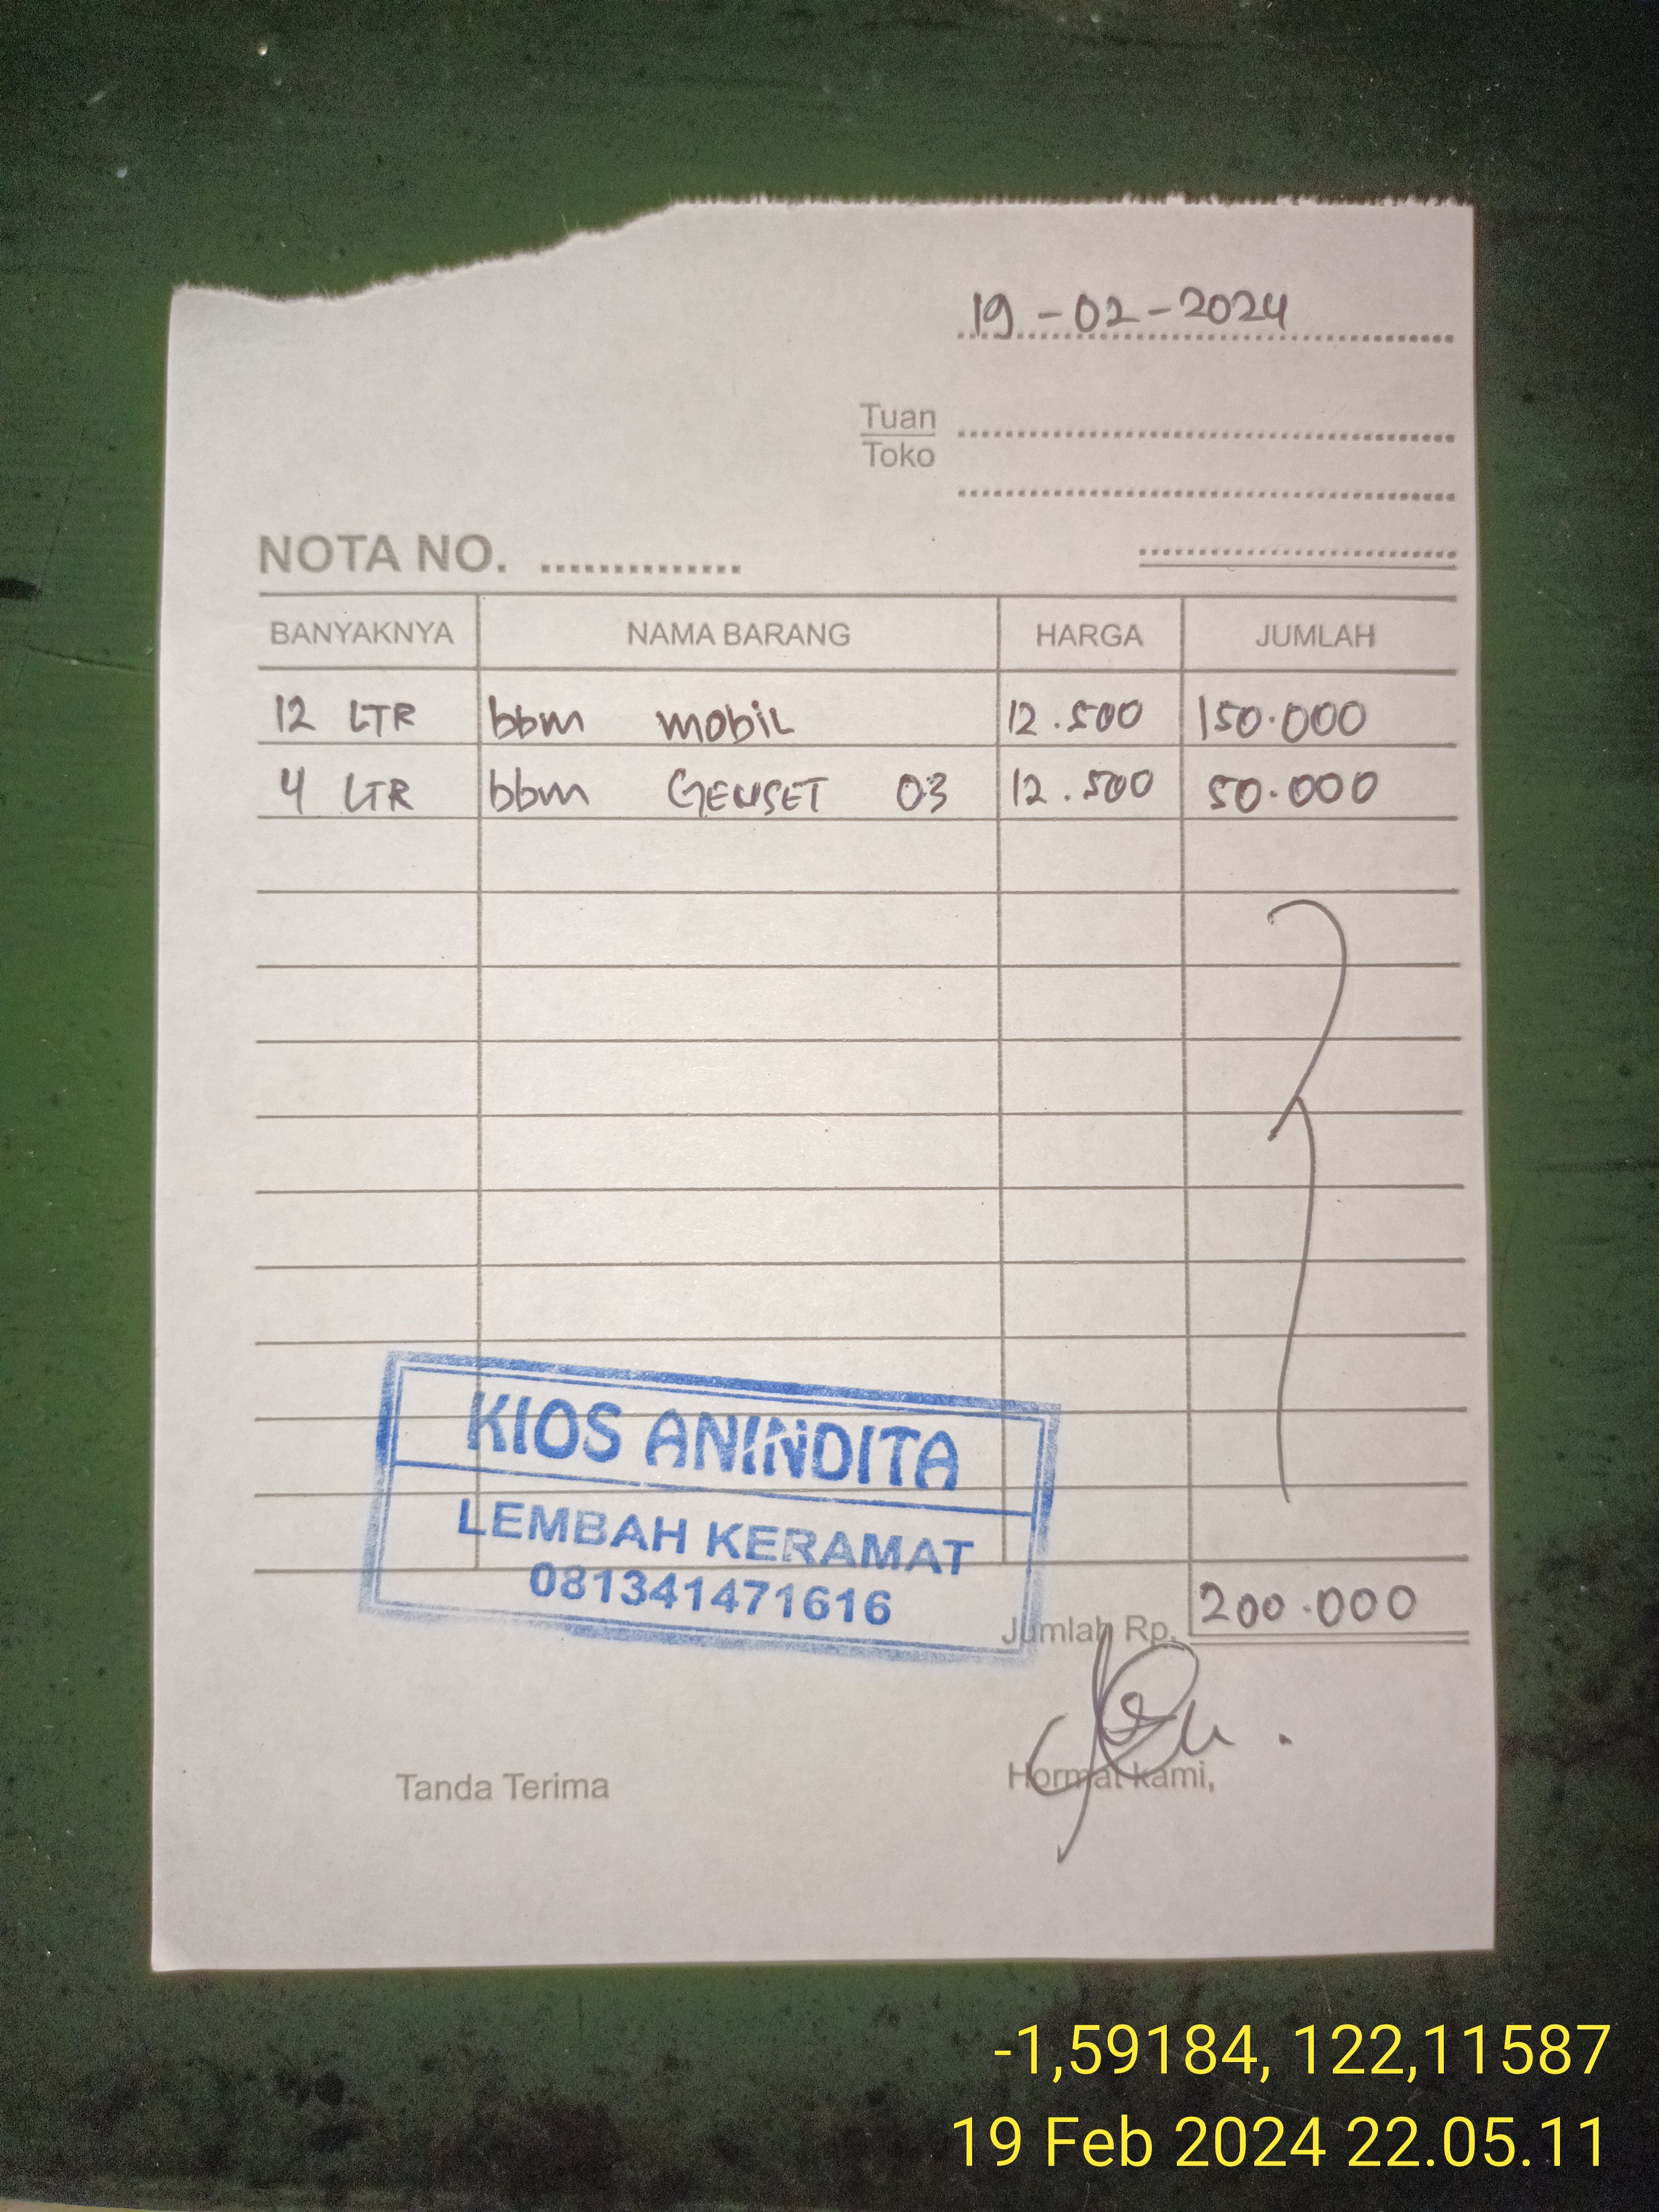 19 - 02 - 2024
Tuan
Toko
NOTA NO. ..............
BANYAKNYA NAMA BARANG HARGA JUMLAH
12 LTR bbm mobil 12.500 150.000
4 LTR bbm GENSET 03 12.500 50.000
KIOS ANINDITA
LEMBAH KERAMAT
081341471616
Jumlah Rp. 200.000
Tanda Terima Hormat kami,
-1,59184, 122,11587
19 Feb 2024 22.05.11